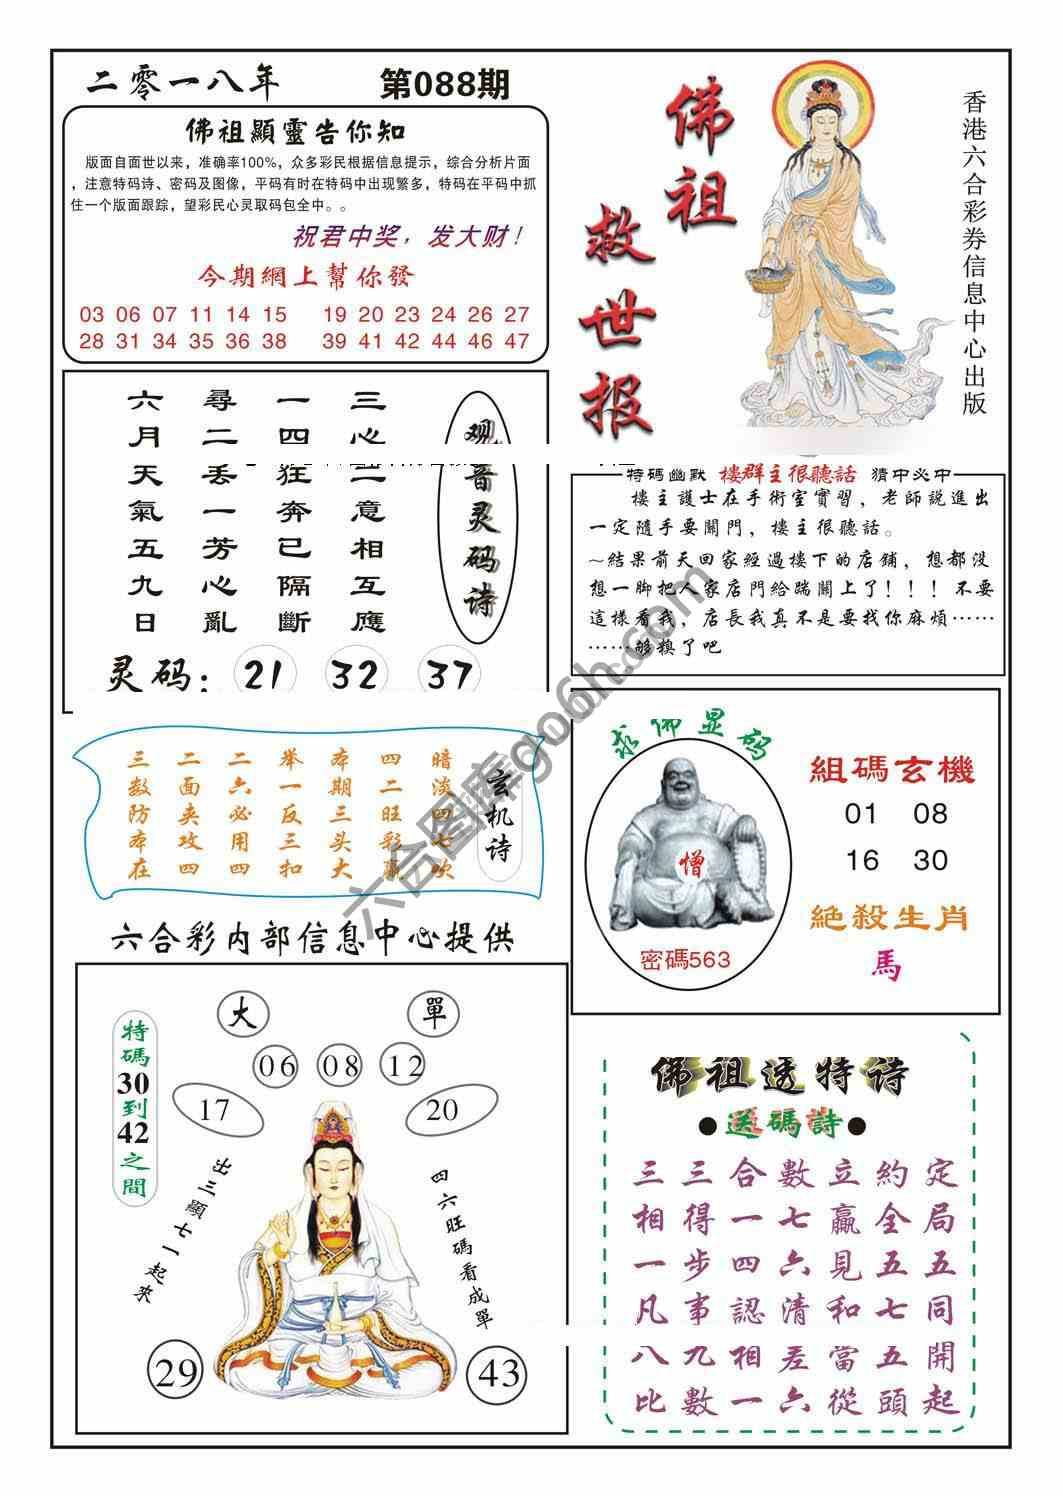 二零一八年
第088期
佛祖顯靈告你知
版面自面世以来，准确率100%，众多彩民根据信息提示，综合分析片面
，注意特码诗、密码及图像，平码有时在特码中出现繁多，特码在平码中抓
住一个版面跟踪，望彩民心灵取码包全中。。
祝君中奖，发大财！
今期網上幫你發
03 06 07 11 14 15 19 20 23 24 26 27
28 31 34 35 36 38 39 41 42 44 46 47
佛祖
救世报
香港六合彩券信息中心出版
观音灵码诗
三心二意相互應
一四狂奔已隔斷
尋二丢一芳心亂
六月天氣五九日
灵码：21 32 37
特碼幽默 樓群主很聽話 猜中必中
樓主護士在手術室實習，老師説進出
一定隨手要關門，樓主很聽話。
~結果前天回家經過樓下的店鋪，想都没
想一脚把人家店門給踹關上了！！！不要
這樣看我，店長我真不是要找你麻煩……
……够糗了吧
玄机诗
暗淡四七吹
四二旺彩贏
本期三头大
举一反三扣
二六必用四
二面夹攻四
三数防本在
求佛显码
僧
密碼563
組碼玄機
01 08
16 30
絶殺生肖
馬
六合彩内部信息中心提供
大
單
06 08 12
17
20
特碼30到42之間
出三顯七一起來
四六旺碼看成單
29
43
佛祖透特诗
●送碼詩●
三三合數立約定
相得一七贏全局
一步四六見五五
凡事認清和七同
八九相差當五開
比數一六從頭起
六合图库go06h.com